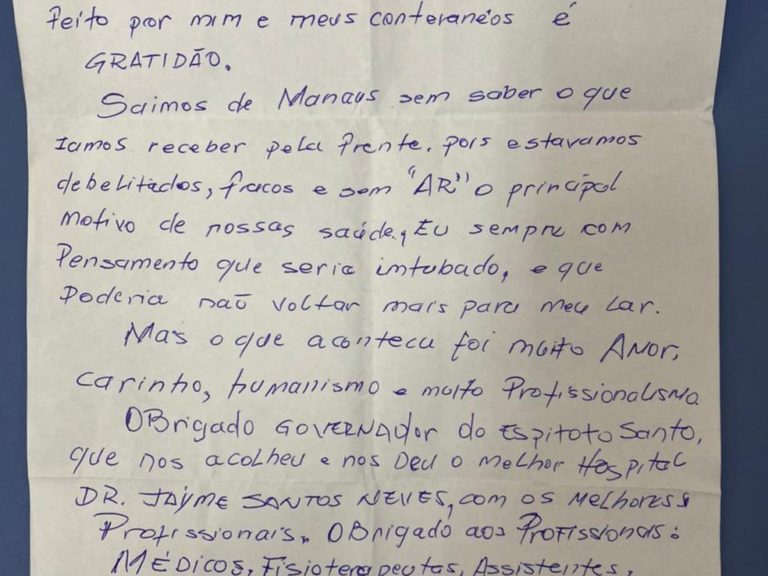 feito por mim e meus conteranêos é
GRATIDÃO.
Saimos de Manaus sem saber o que
Iamos receber pela frente. pois estavamos
debelitados, fracos e sem "AR" o principal
Motivo de nossas saúde, EU sempre com
Pensamento que seria imtubado, e que
Poderia não voltar mais para meu Lar.
Mas o que aconteceu foi muito Amor,
Carinho, humanismo e muito Profissionalismo
OBrigado GOVERNAdor do Espitoto Santo,
que nos acolheu e nos Deu o melhor Hospital
DR. JAYME SANTOS NEVES, com os melhoress
Profissionais, OBrigado aos Profissionais:
MÉDICOS, Fisioterapeutas, Assistentes,